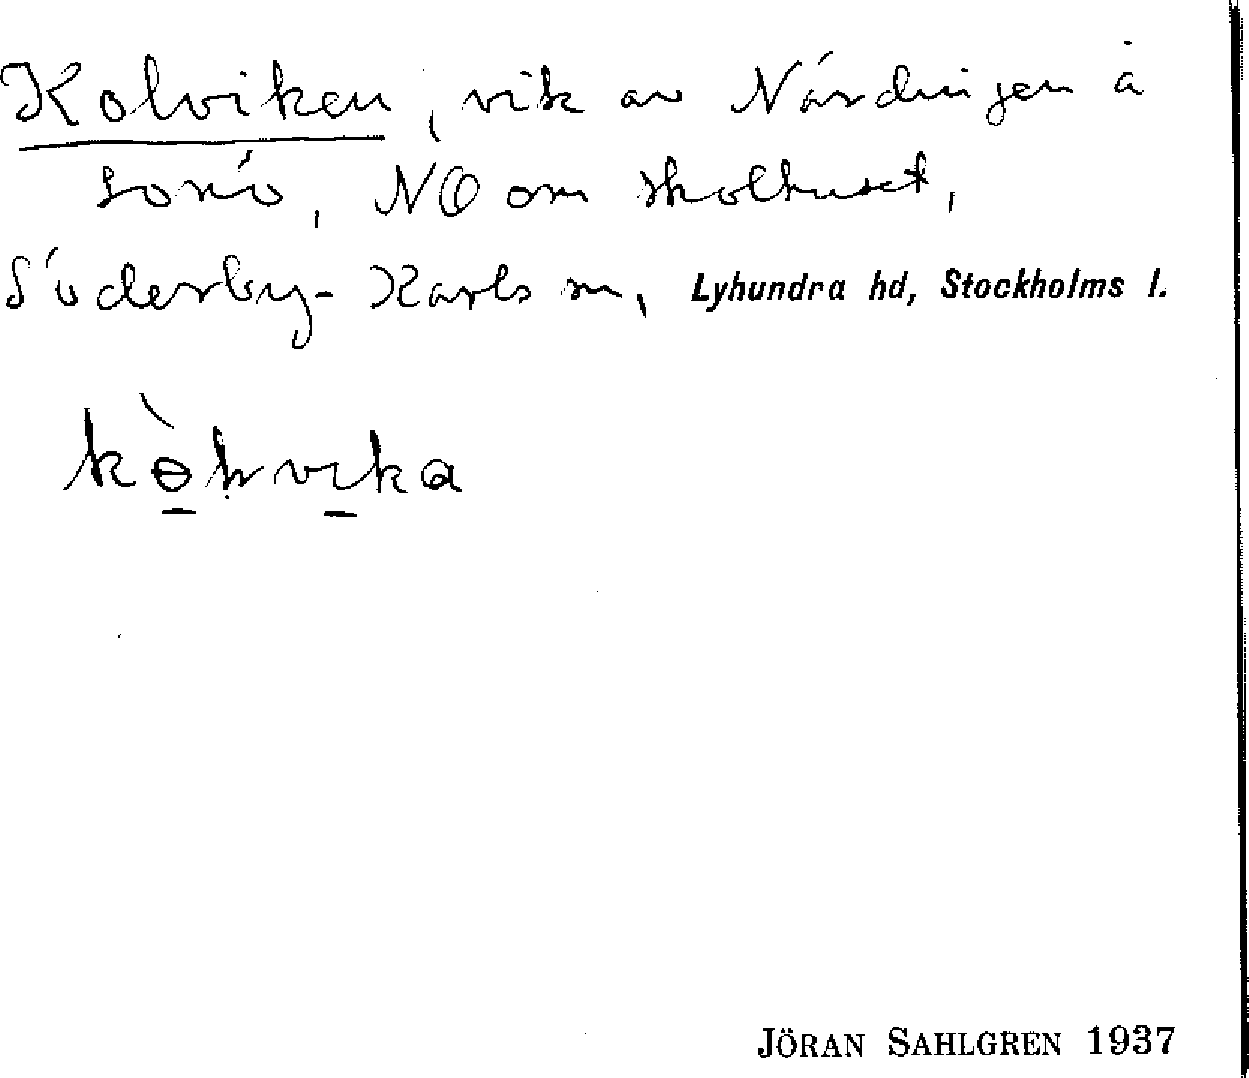 Kolviken, vik av Närdingen å
Sonö, NO om skolhuset,
Söderby-Karls sn, Lyhundra hd, Stockholms l.
JÖRAN SAHLGREN 1937